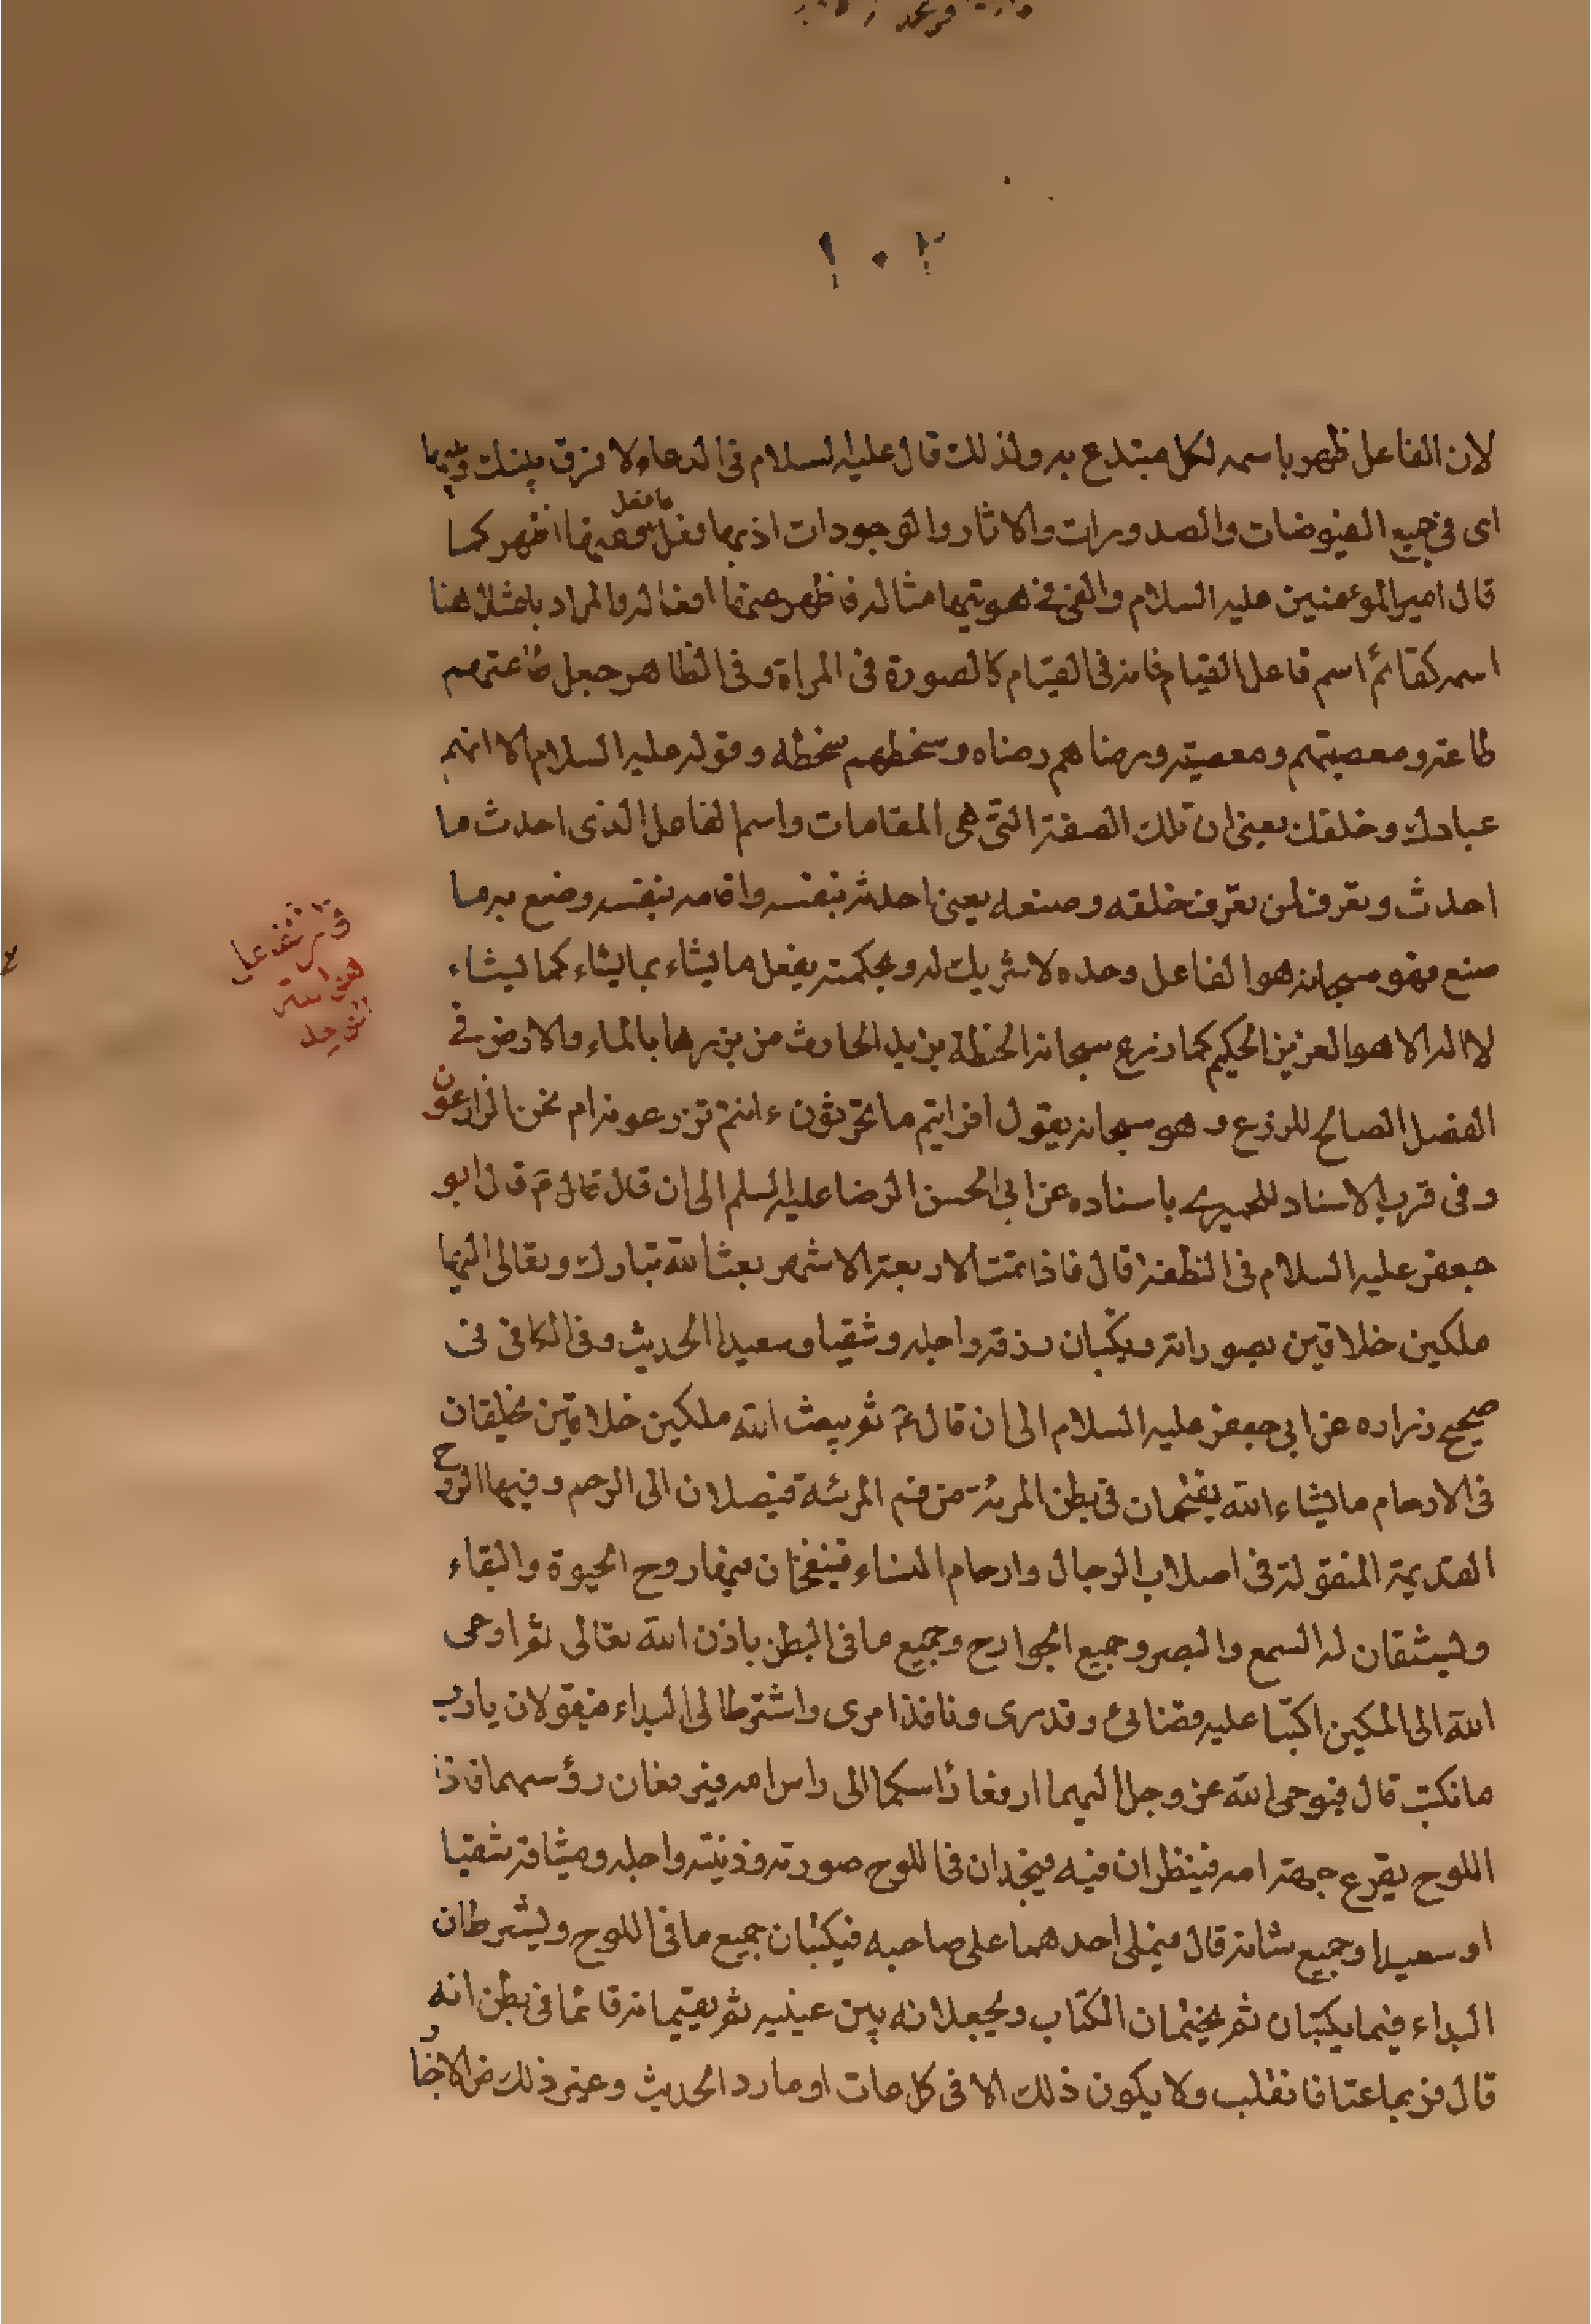 ١٠٢
لان الفاعل ظهر باسمه لكل مبتدع به ولذلك قال عليه السلام في الدعاء ولا فرق بينك وبينها
اى في جميع الفيوضات والصدورات والاثار والوجودات اذ بها فعل ما فعل وعنها اظهر كما
قال امير المؤمنين عليه السلام والقى في هويتها مثاله فاظهر عنها افعاله والمراد بالمثال هنا
اسمه كقائم اسم فاعل القيام فانه في القيام كالصورة في المراة وفي الظاهر جعل طاعتهم
طاعته ومعصيتهم ومعصيته ورضاهم رضاه وسخطهم سخطه وقوله عليه السلام الا انهم
عبادك وخلقك يعنى ان تلك الصفة التى هى المقامات واسم الفاعل الذى احدث ما
احدث وتعرف لمن تعرف خلقه وصنعه يعنى احدثه بنفسه واقامه بنفسه وصنع به ما
صنع فهو سبحانه هو الفاعل وحده لا شريك له وبحكمته يفعل ما يشاء بما يشاء كما يشاء
لا اله الا هو العزيز الحكيم كما زرع سبحانه الحنطة بزيد الحارث من بزرها بالماء والارض في
الفصل الصالح للزرع وهو سبحانه يقول افرايتم ما تحرثون ءانتم تزرعونه ام نحن الزارعون
وفى قرب الاسناد للحميرى باسناده عن ابى الحسن الرضا عليه السلم الى ان قال قال ثم قال ابو
جعفر عليه السلام في النطفة قال فاذا تمت الاربعة الاشهر بعث الله تبارك وتعالى اليها
ملكين خلاقين يصورانه ويكتبان رزقه واجله وشقيا وسعيدا الحديث وفى الكافى فى
صحيح زراره عن ابى جعفر عليه السلام الى ان قال ثم يبعث الله ملكين خلاقين يخلقان
فى الارحام ما يشاء الله يقتحمان فى بطن المرئة من فم المرئة فيصلان الى الرحم وفيها الروح
القديمة المنقولة فى اصلاب الرجال وارحام النساء فينفخان فيها روح الحيوة والبقاء
ويشقان له السمع والبصر وجميع الجوارح وجميع ما فى البطن باذن الله تعالى ثم اوحى
الله الى الملكين اكتبا عليه قضائى وقدرى ونافذ امرى واشترطا لى البداء فيقولان يارب
ما نكتب قال فيوحى الله عز وجل اليهما ارفعا رأسكما الى راس امه فيرفعان رؤسهما فاذا
اللوح يقرع جبهة امه فينظران فيه فيجدان فى اللوح صورته وزينته واجله وميثاقه شقيا
او سعيدا وجميع شانه قال فيملى احدهما على صاحبه فيكتبان جميع ما فى اللوح ويشرطان
البداء فيما يكتبان ثم يختمان الكتاب ويجعلانه بين عينيه ثم يقيمانه قائما فى بطن امه
قال فربما عتا فانقلب ولا يكون ذلك الا فى كل عات او مارد الحديث وغير ذلك من الاخبار